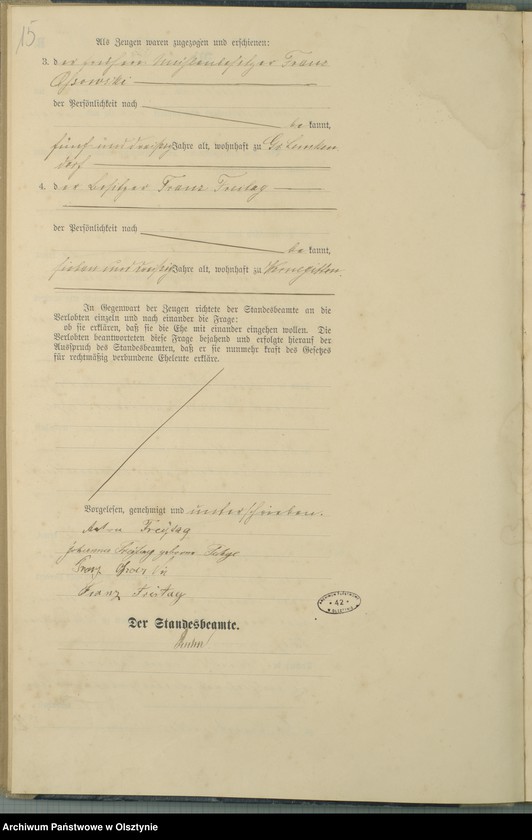 15
Als Zeugen waren zugezogen und erschienen:
3. der
Franz
der Persönlichkeit nach
be kannt,
fünf und dreißig Jahre alt, wohnhaft zu
dorf
4. der Besitzer Franz Freitag
der Persönlichkeit nach
be kannt,
sieben und dreißig Jahre alt, wohnhaft zu
In Gegenwart der Zeugen richtete der Standesbeamte an die
Verlobten einzeln und nach einander die Frage:
ob sie erklären, daß sie die Ehe mit einander eingehen wollen. Die
Verlobten beantworteten diese Frage bejahend und erfolgte hierauf der
Ausspruch des Standesbeamten, daß er sie nunmehr kraft des Gesetzes
für rechtmäßig verbundene Eheleute erkläre.
Vorgelesen, genehmigt und unterschrieben.
Anton Freytag
Freytag geborene
Franz
Franz Freitag
42
Der Standesbeamte.
Archiwum Państwowe w Olsztynie